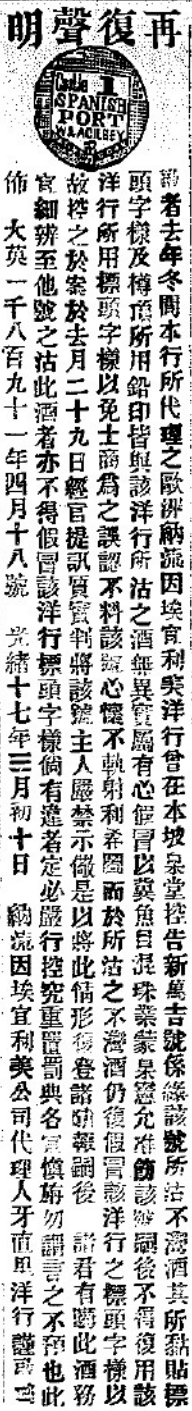 再復聲明
Castle 1
SPANISH
PORT
W & A GILBEY
者去年冬間本行所代理之歐洲納流因埃宜利美洋行曾在本坡臬堂控告新萬吉號係緣該號所沽不灣酒其所黏貼標
頭字樣及樽頂所用鉛印皆與該洋行所沽之酒無異實屬有心假冒以冀魚目混珠業蒙臬憲允准飭該號嗣後不得復用該
洋行所用標頭字樣以免士商爲之誤認不料該號心懷不軌射利希圖而於所沽之不灣酒仍復假冒該洋行之標頭字樣以
故控之於案於去月二十九日經官提訊質實判將該號主人嚴禁示儆是以將此情形復登諸報嗣後 諸君有購此酒務
宜細辨至他號之沽此酒者亦不得假冒該洋行標頭字樣倘有違者定必嚴行控究重置罰典各宜慎旃勿謂言之不預也此
佈 大英一千八百九十一年四月十八號 光緒十七年三月初十日 納流因埃宜利美公司代理人牙直利洋行謹